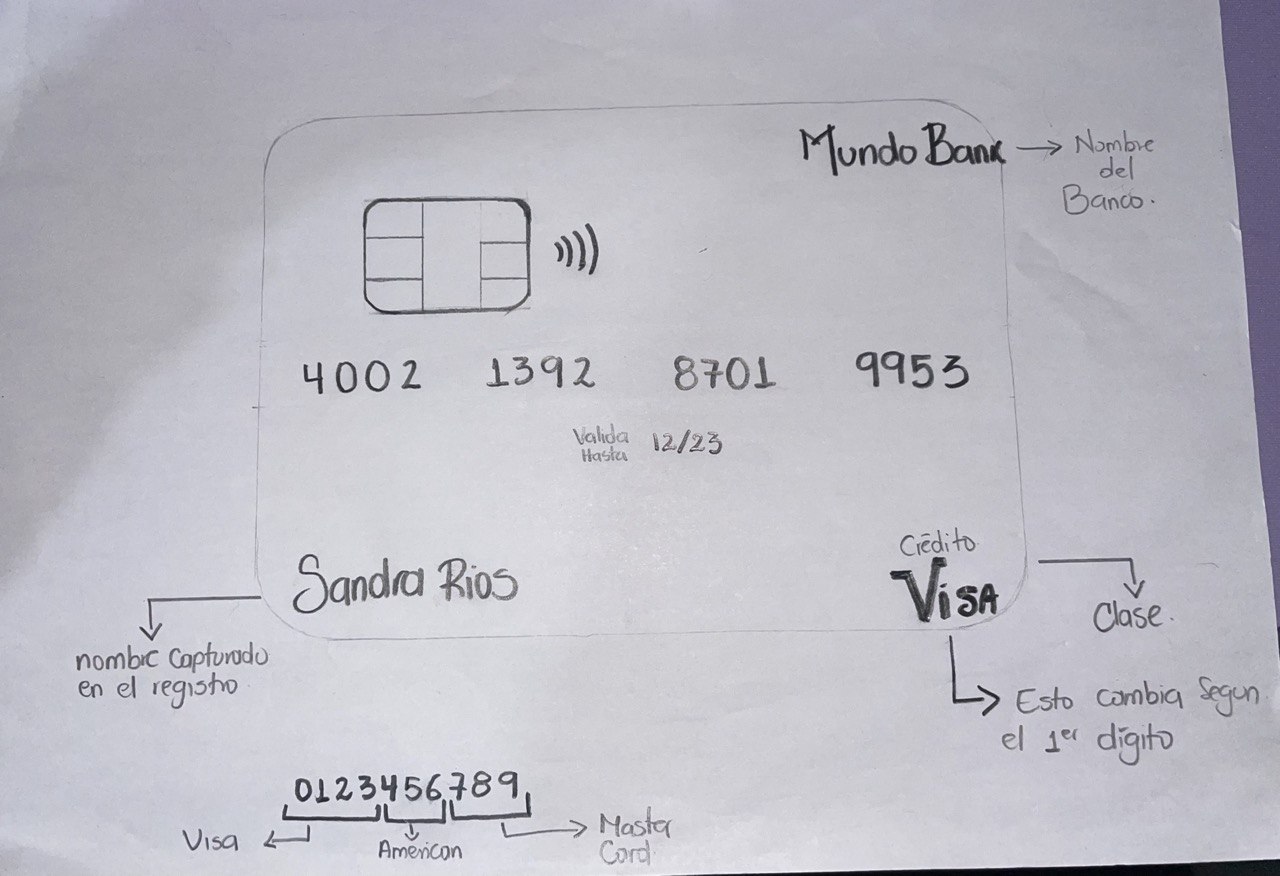 Mundo Bank → Nombre
del
Banco.
4002 1392 8701 9953
Valida
Hasta
12/23
Crédito
Sandra Rios
Visa
Clase.
nombre Capturado
en el registro.
Esto cambia Segun
el 1er dígito
0123456789
Visa
American
Master
Card